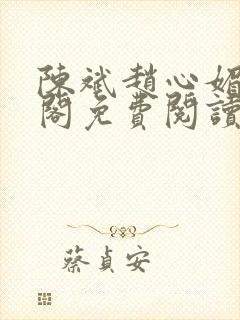 陳斌趙心媚
閣免費閱讀
蔡貞安